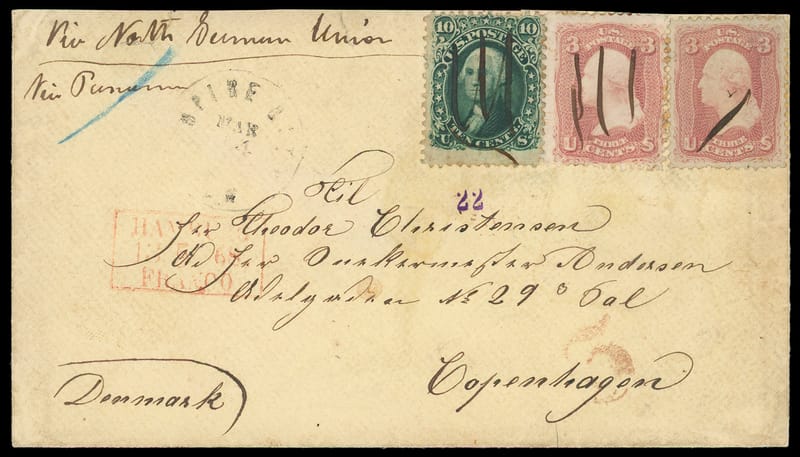 Via North German Union
Via Panama
EMPIRE CITY
MAR
10 10
U.S. POSTAGE
TEN CENTS
U S
3 3
U.S.
POSTAGE
THREE
U CENTS S
3 3
U.S.
POSTAGE
THREE
U CENTS S
22
Til
Herr Theodor Christensen
Ad Herr Snekkermester Andersen
Adelgaden No 29 Sal
HAMBURG
68
FRANCO
Copenhagen
Denmark